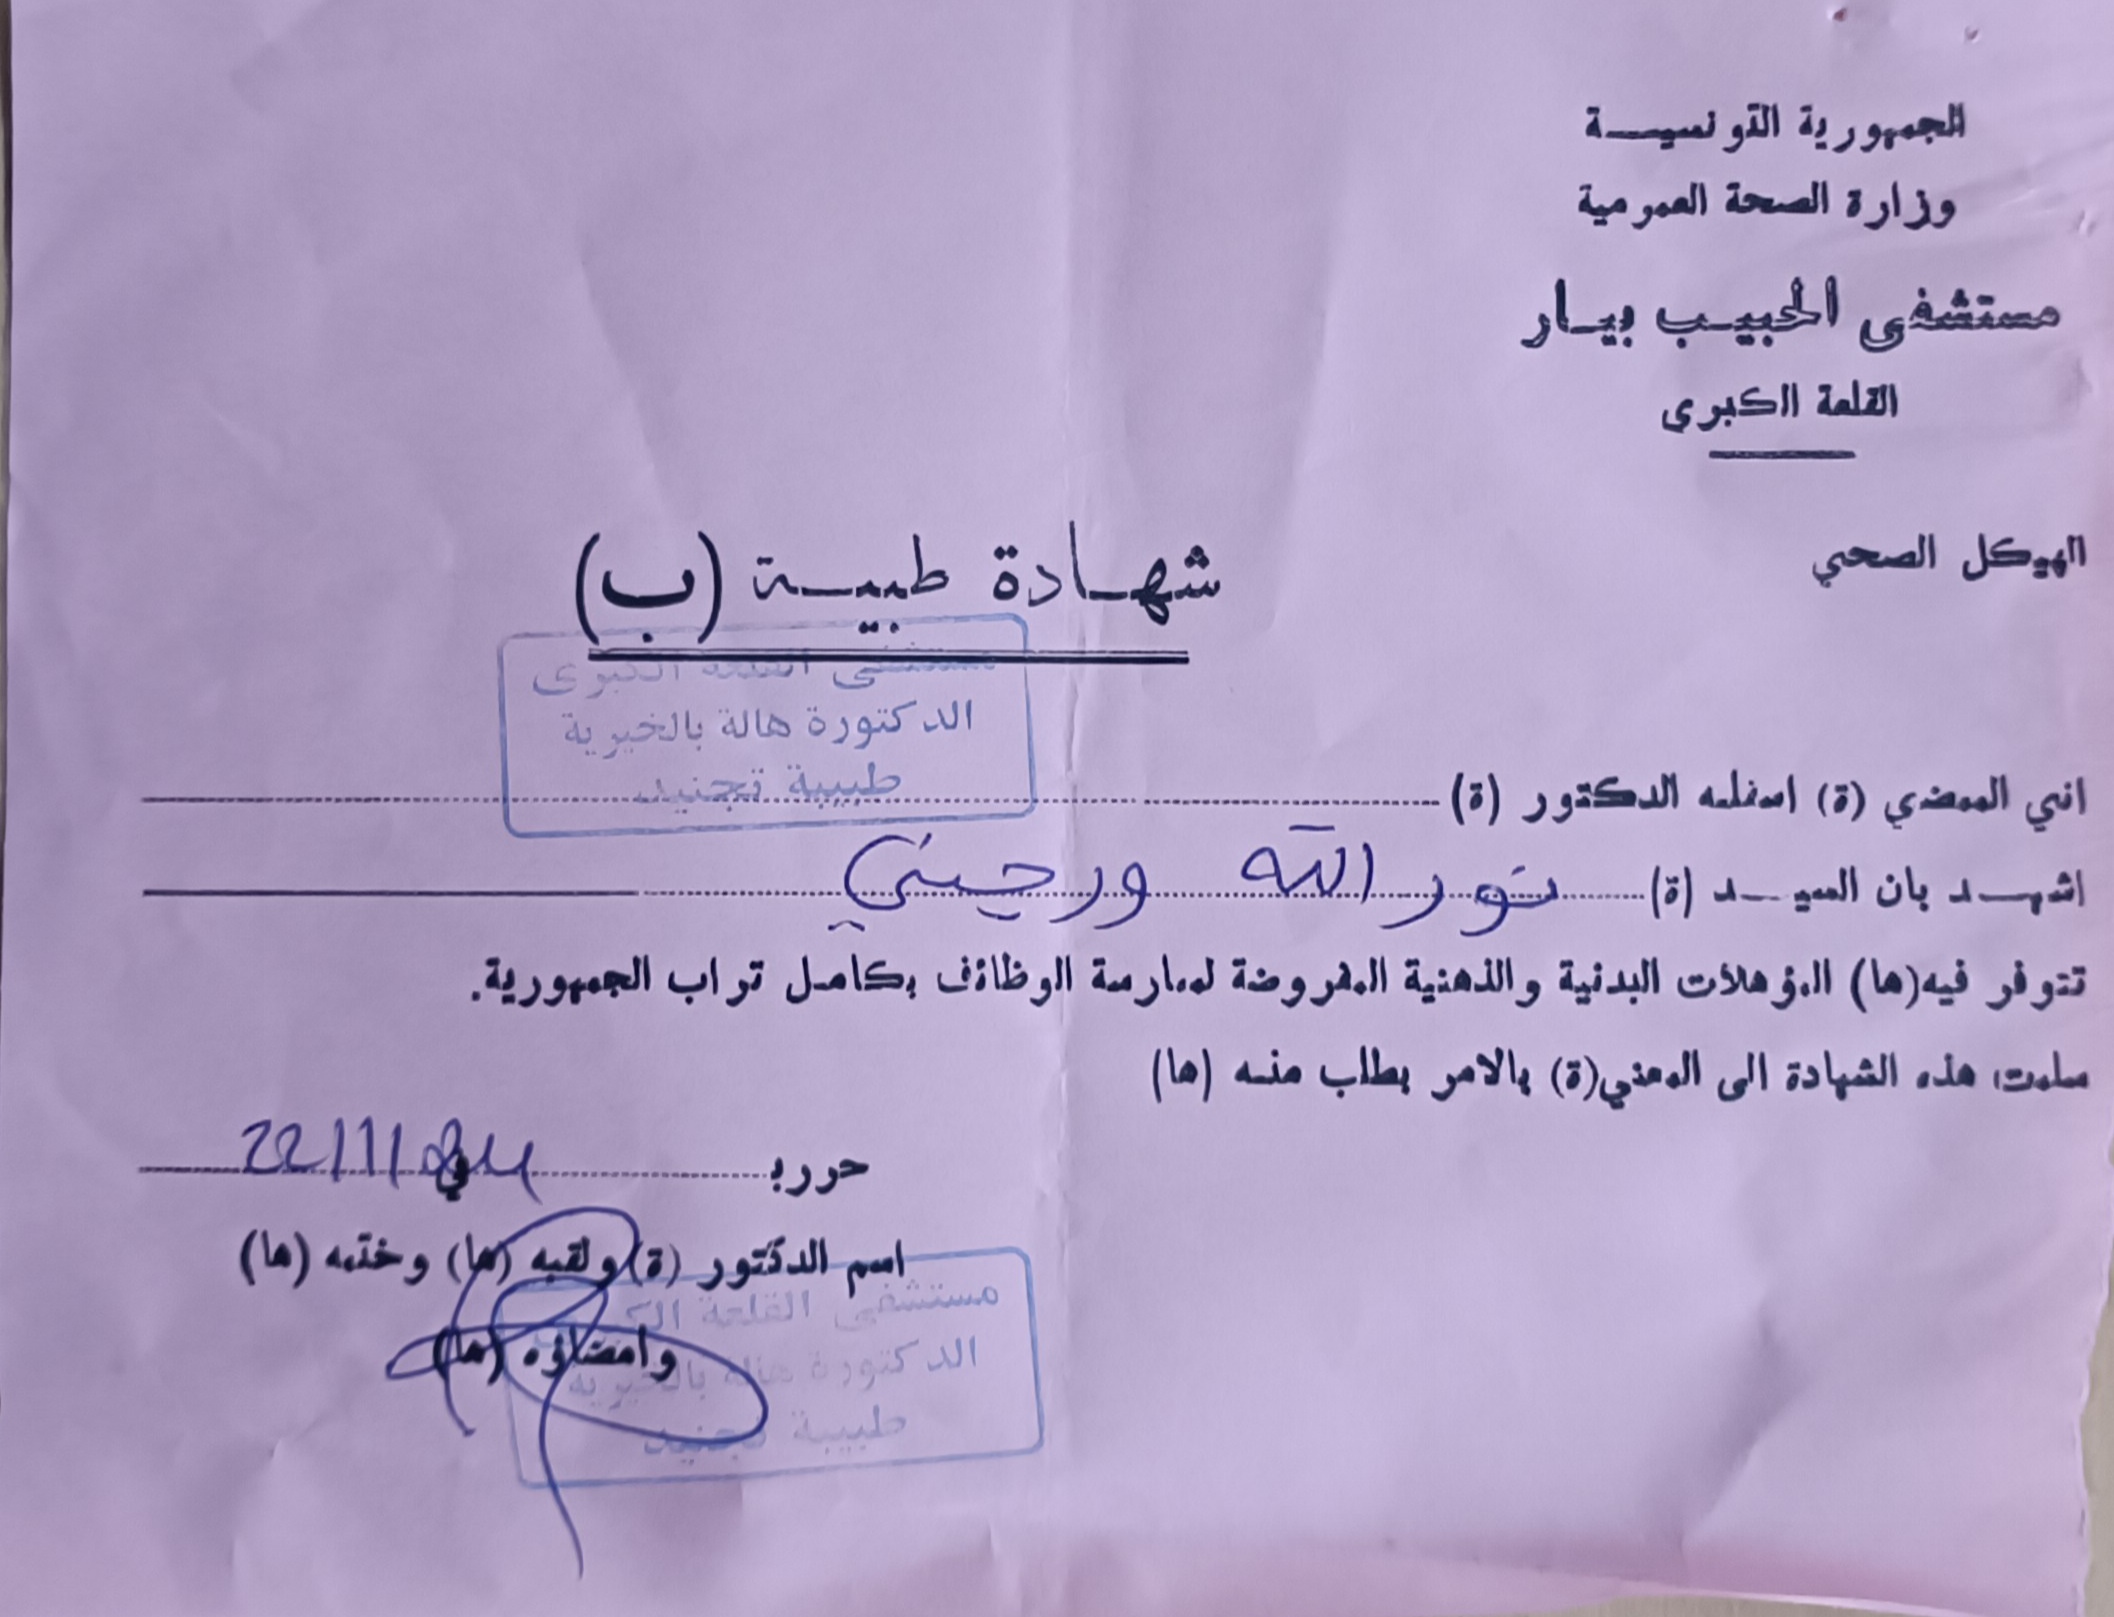 الجمهورية التونسيـــة
وزارة الصحة العمومية
مستشفى الحبيب بيار
القلعة الكبرى
الهيكل الصحي
شهادة طبيـــة (ب)
مستشفى القلعة الكبرى
الدكتورة هالة بالخيرية
طبيبة تجنيد
اني الممضي (ة) اسفله الدكتور (ة)
اشهـــد بان السيـــد (ة) نور الله ورحيني
تتوفر فيه(ها) المؤهلات البدنية والذهنية المفروضة لممارسة الوظائف بكامل تراب الجمهورية.
سلمت هذه الشهادة الى المعني(ة) بالامر بطلب منه (ها)
حرر بـ في 22/11/
اسم الدكتور (ة) ولقبه (ها) وختمه (ها)
وامضاؤه (ها)
مستشفى القلعة
الدكتورة هالة بالخيرية
طبيبة تجنيد